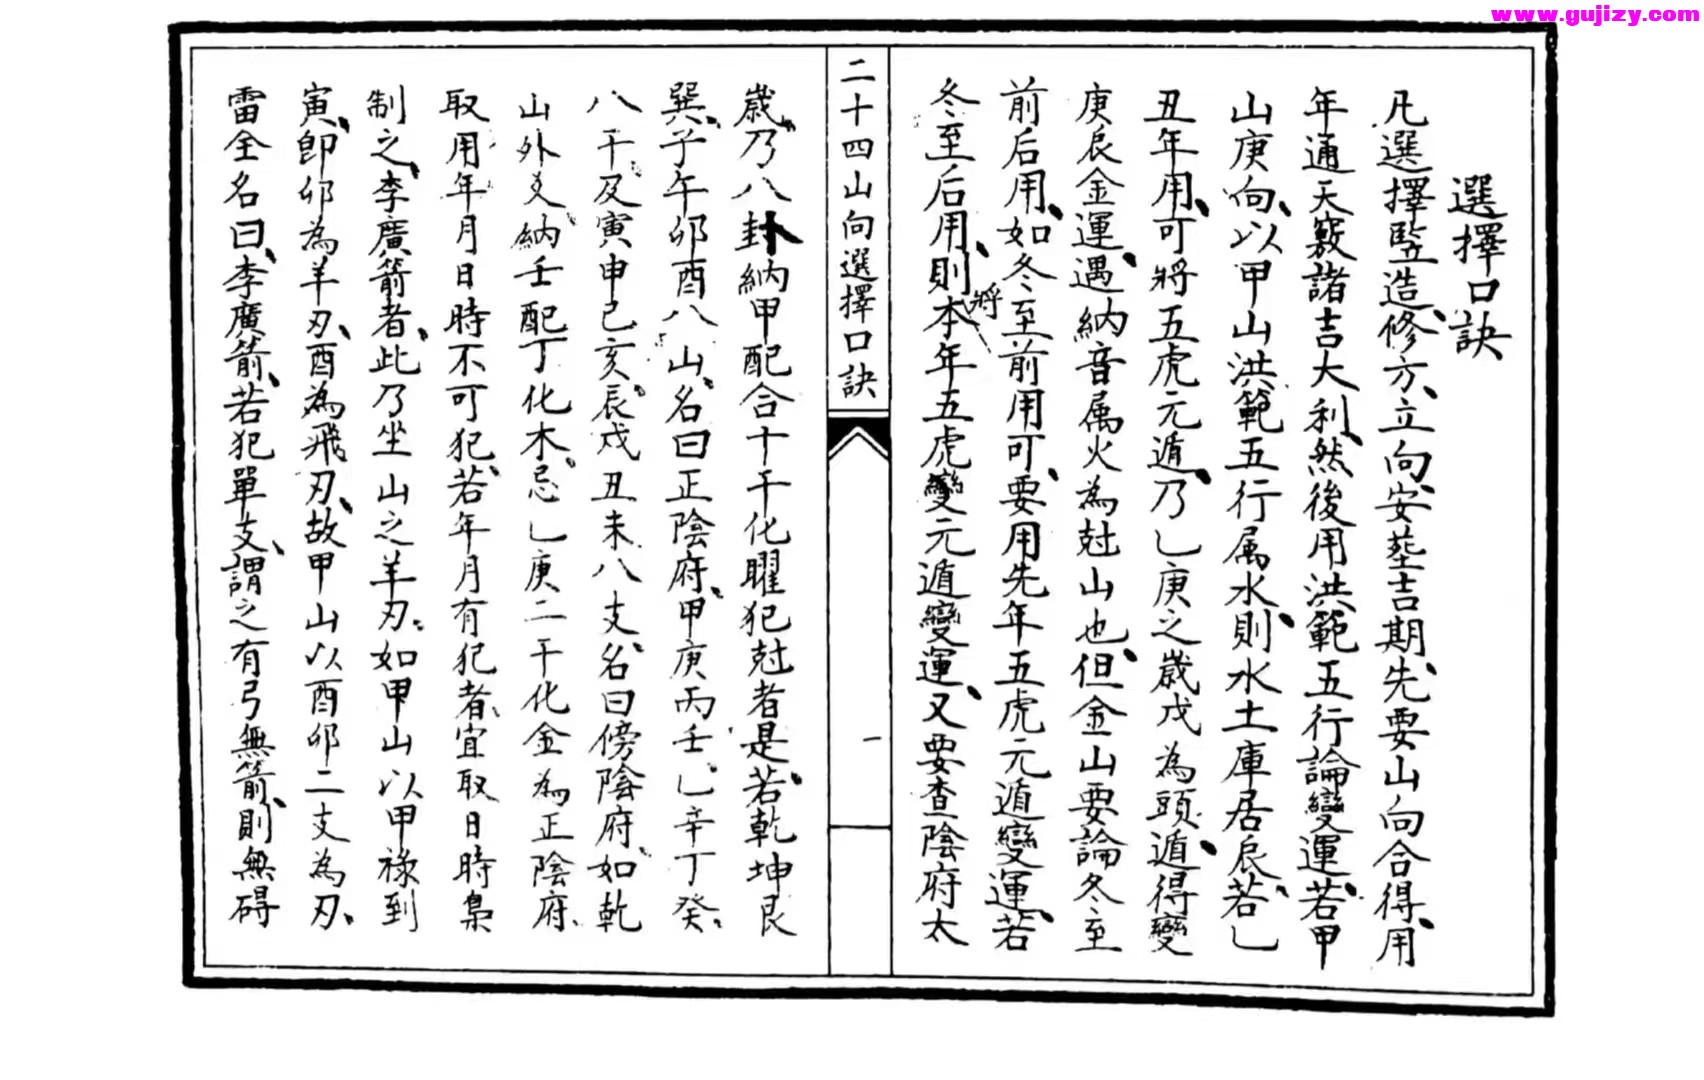 www.gujizy.com
選擇口訣
凡選擇竪造、修方、立向、安塟吉期、先要山向合得、用
年通天竅諸吉大利、然後用洪範五行論變運、若甲
山庚向、以甲山洪範五行属水、則水土庫居辰、若乙
丑年用、可將五虎元遁、乃乙庚之歲戊為頭、遁得變
庚辰金運、遇納音属火為尅山也、但金山要論冬至
前后用、如冬至前用可、要用先年五虎元遁變運、若
冬至后用、則將本年五虎變元遁變運、又要查陰府太
二十四山向選擇口訣
一
歲、乃八卦納甲配合十干化曜犯尅者是、若乾坤艮
巽、子午卯酉八山、名曰正陰府、甲庚丙壬乙辛丁癸、
八干、及寅申巳亥、辰戌丑未八支、名曰傍陰府、如乾
山外爻納壬配丁化木、忌乙庚二干化金為正陰府、
取用年月日時不可犯、若年月有犯者、宜取日時梟
制之、李廣箭者、此乃坐山之羊刃、如甲山以甲祿到
寅、卽卯為羊刃、酉為飛刃、故甲山以酉卯二支為刃、
雷全名曰、李廣箭、若犯單支、謂之有弓無箭、則無碍